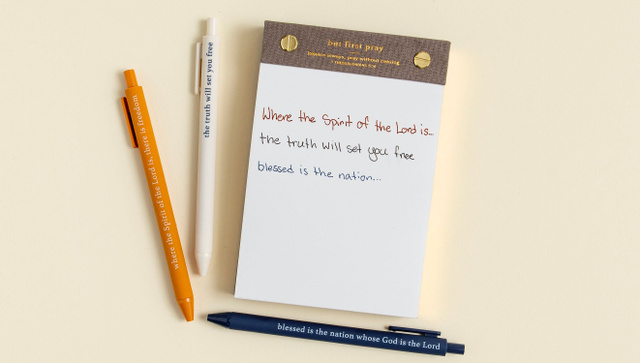 but first pray
rejoice always, pray without ceasing
Where the Spirit of the Lord is...
the truth will set you free
blessed is the nation...
the truth will set you free
where the Spirit of the Lord is, there is freedom
blessed is the nation whose God is the Lord